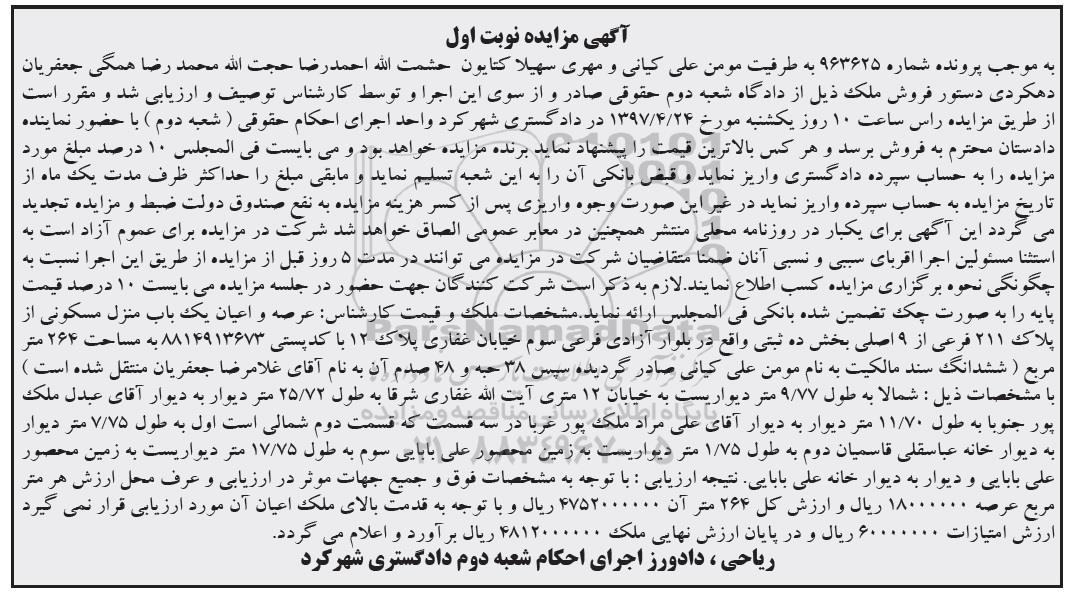 آگهی مزایده نوبت اول
به موجب پرونده شماره ۹۶۳۶۲۵ به طرفیت مومن علی کیانی و مهری سهیلا کتایون حشمت الله احمدرضا حجت الله محمد رضا همگی جعفریان
دهکردی دستور فروش ملک ذیل از دادگاه شعبه دوم حقوقی صادر و از سوی این اجرا و توسط کارشناس توصیف و ارزیابی شد و مقرر است
از طریق مزایده راس ساعت ۱۰ روز یکشنبه مورخ ۱۳۹۷/۴/۲۴ در دادگستری شهرکرد واحد اجرای احکام حقوقی ( شعبه دوم ) با حضور نماینده
دادستان محترم به فروش برسد و هر کس بالاترین قیمت را پیشنهاد نماید برنده مزایده خواهد بود و می بایست فی المجلس ۱۰ درصد مبلغ مورد
مزایده را به حساب سپرده دادگستری واریز نماید و قبض بانکی آن را به این شعبه تسلیم نماید و مابقی مبلغ را حداکثر ظرف مدت یک ماه از
تاریخ مزایده به حساب سپرده واریز نماید در غیر این صورت وجوه واریزی پس از کسر هزینه مزایده به نفع صندوق دولت ضبط و مزایده تجدید
می گردد این آگهی برای یکبار در روزنامه محلی منتشر همچنین در معابر عمومی الصاق خواهد شد شرکت در مزایده برای عموم آزاد است به
استثنا مسئولین اجرا اقربای سببی و نسبی آنان ضمنا متقاضیان شرکت در مزایده می توانند در مدت ۵ روز قبل از مزایده از طریق این اجرا نسبت به
چگونگی نحوه برگزاری مزایده کسب اطلاع نمایند.لازم به ذکر است شرکت کنندگان جهت حضور در جلسه مزایده می بایست ۱۰ درصد قیمت
پایه را به صورت چک تضمین شده بانکی فی المجلس ارائه نماید.مشخصات ملک و قیمت کارشناس: عرصه و اعیان یک باب منزل مسکونی از
پلاک ۲۱۱ فرعی از ۹ اصلی بخش ده ثبتی واقع در بلوار آزادی فرعی سوم خیابان غفاری پلاک ۱۲ با کدپستی ۸۸۱۴۹۱۳۶۷۳ به مساحت ۲۶۴ متر
مربع ( ششدانگ سند مالکیت به نام مومن علی کیانی صادر گردیده سپس ۳۸ حبه و ۴۸ صدم آن به نام آقای غلامرضا جعفریان منتقل شده است )
با مشخصات ذیل : شمالا به طول ۹/۷۷ متر دیواریست به خیابان ۱۲ متری آیت الله غفاری شرقا به طول ۲۵/۷۲ متر دیوار به دیوار آقای عبدل ملک
پور جنوبا به طول ۱۱/۷۰ متر دیوار به دیوار آقای علی مراد ملک پور غربا در سه قسمت که قسمت دوم شمالی است اول به طول ۷/۷۵ متر دیوار
به دیوار خانه عباسقلی قاسمیان دوم به طول ۱/۷۵ متر دیواریست به زمین محصور علی بابایی سوم به طول ۱۷/۷۵ متر دیواریست به زمین محصور
علی بابایی و دیوار به دیوار خانه علی بابایی. نتیجه ارزیابی : با توجه به مشخصات فوق و جمیع جهات موثر در ارزیابی و عرف محل ارزش هر متر
مربع عرصه ۱۸۰۰۰۰۰۰ ریال و ارزش کل ۲۶۴ متر آن ۴۷۵۲۰۰۰۰۰۰ ریال و با توجه به قدمت بالای ملک اعیان آن مورد ارزیابی قرار نمی گیرد
ارزش امتیازات ۶۰۰۰۰۰۰۰ ریال و در پایان ارزش نهایی ملک ۴۸۱۲۰۰۰۰۰۰ ریال برآورد و اعلام می گردد.
ریاحی ، دادورز اجرای احکام شعبه دوم دادگستری شهرکرد
ParsNamadData
پایگاه اطلاع رسانی مناقصه و مزایده